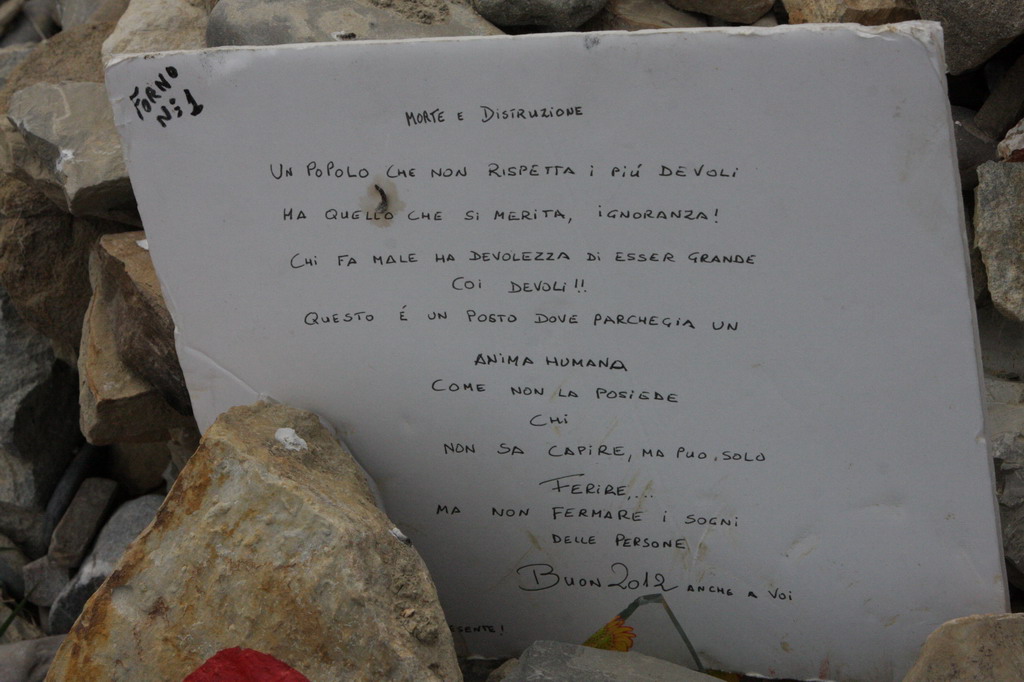 FORNO
N: 1
MORTE E DISTRUZIONE
UN POPOLO CHE NON RISPETTA I PIÚ DEVOLI
HA QUELLO CHE SI MERITA, IGNORANZA!
CHI FA MALE HA DEVOLEZZA DI ESSER GRANDE
COI DEVOLI!!
QUESTO É UN POSTO DOVE PARCHEGIA UN
ANIMA HUMANA
COME NON LA POSIEDE
CHI
NON SA CAPIRE, MA PUO, SOLO
FERIRE,...
MA NON FERMARE I SOGNI
DELLE PERSONE
BUON 2012 ANCHE A VOI